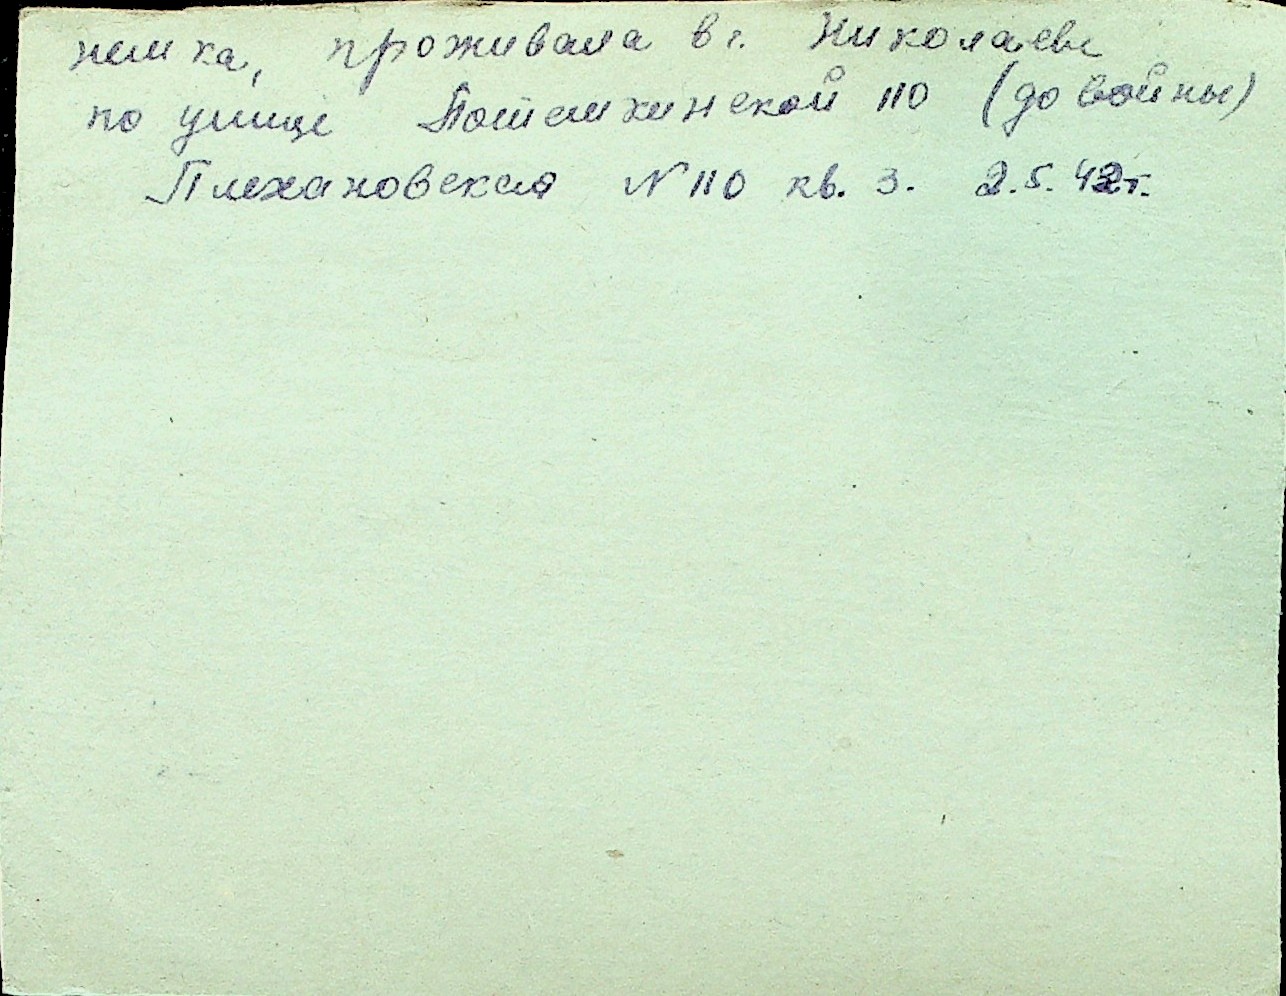 немка, проживала в г. Николаеве
по улице Потемкинской 110 (до войны)
Плехановская N 110 кв. 3. 2.5.42г.